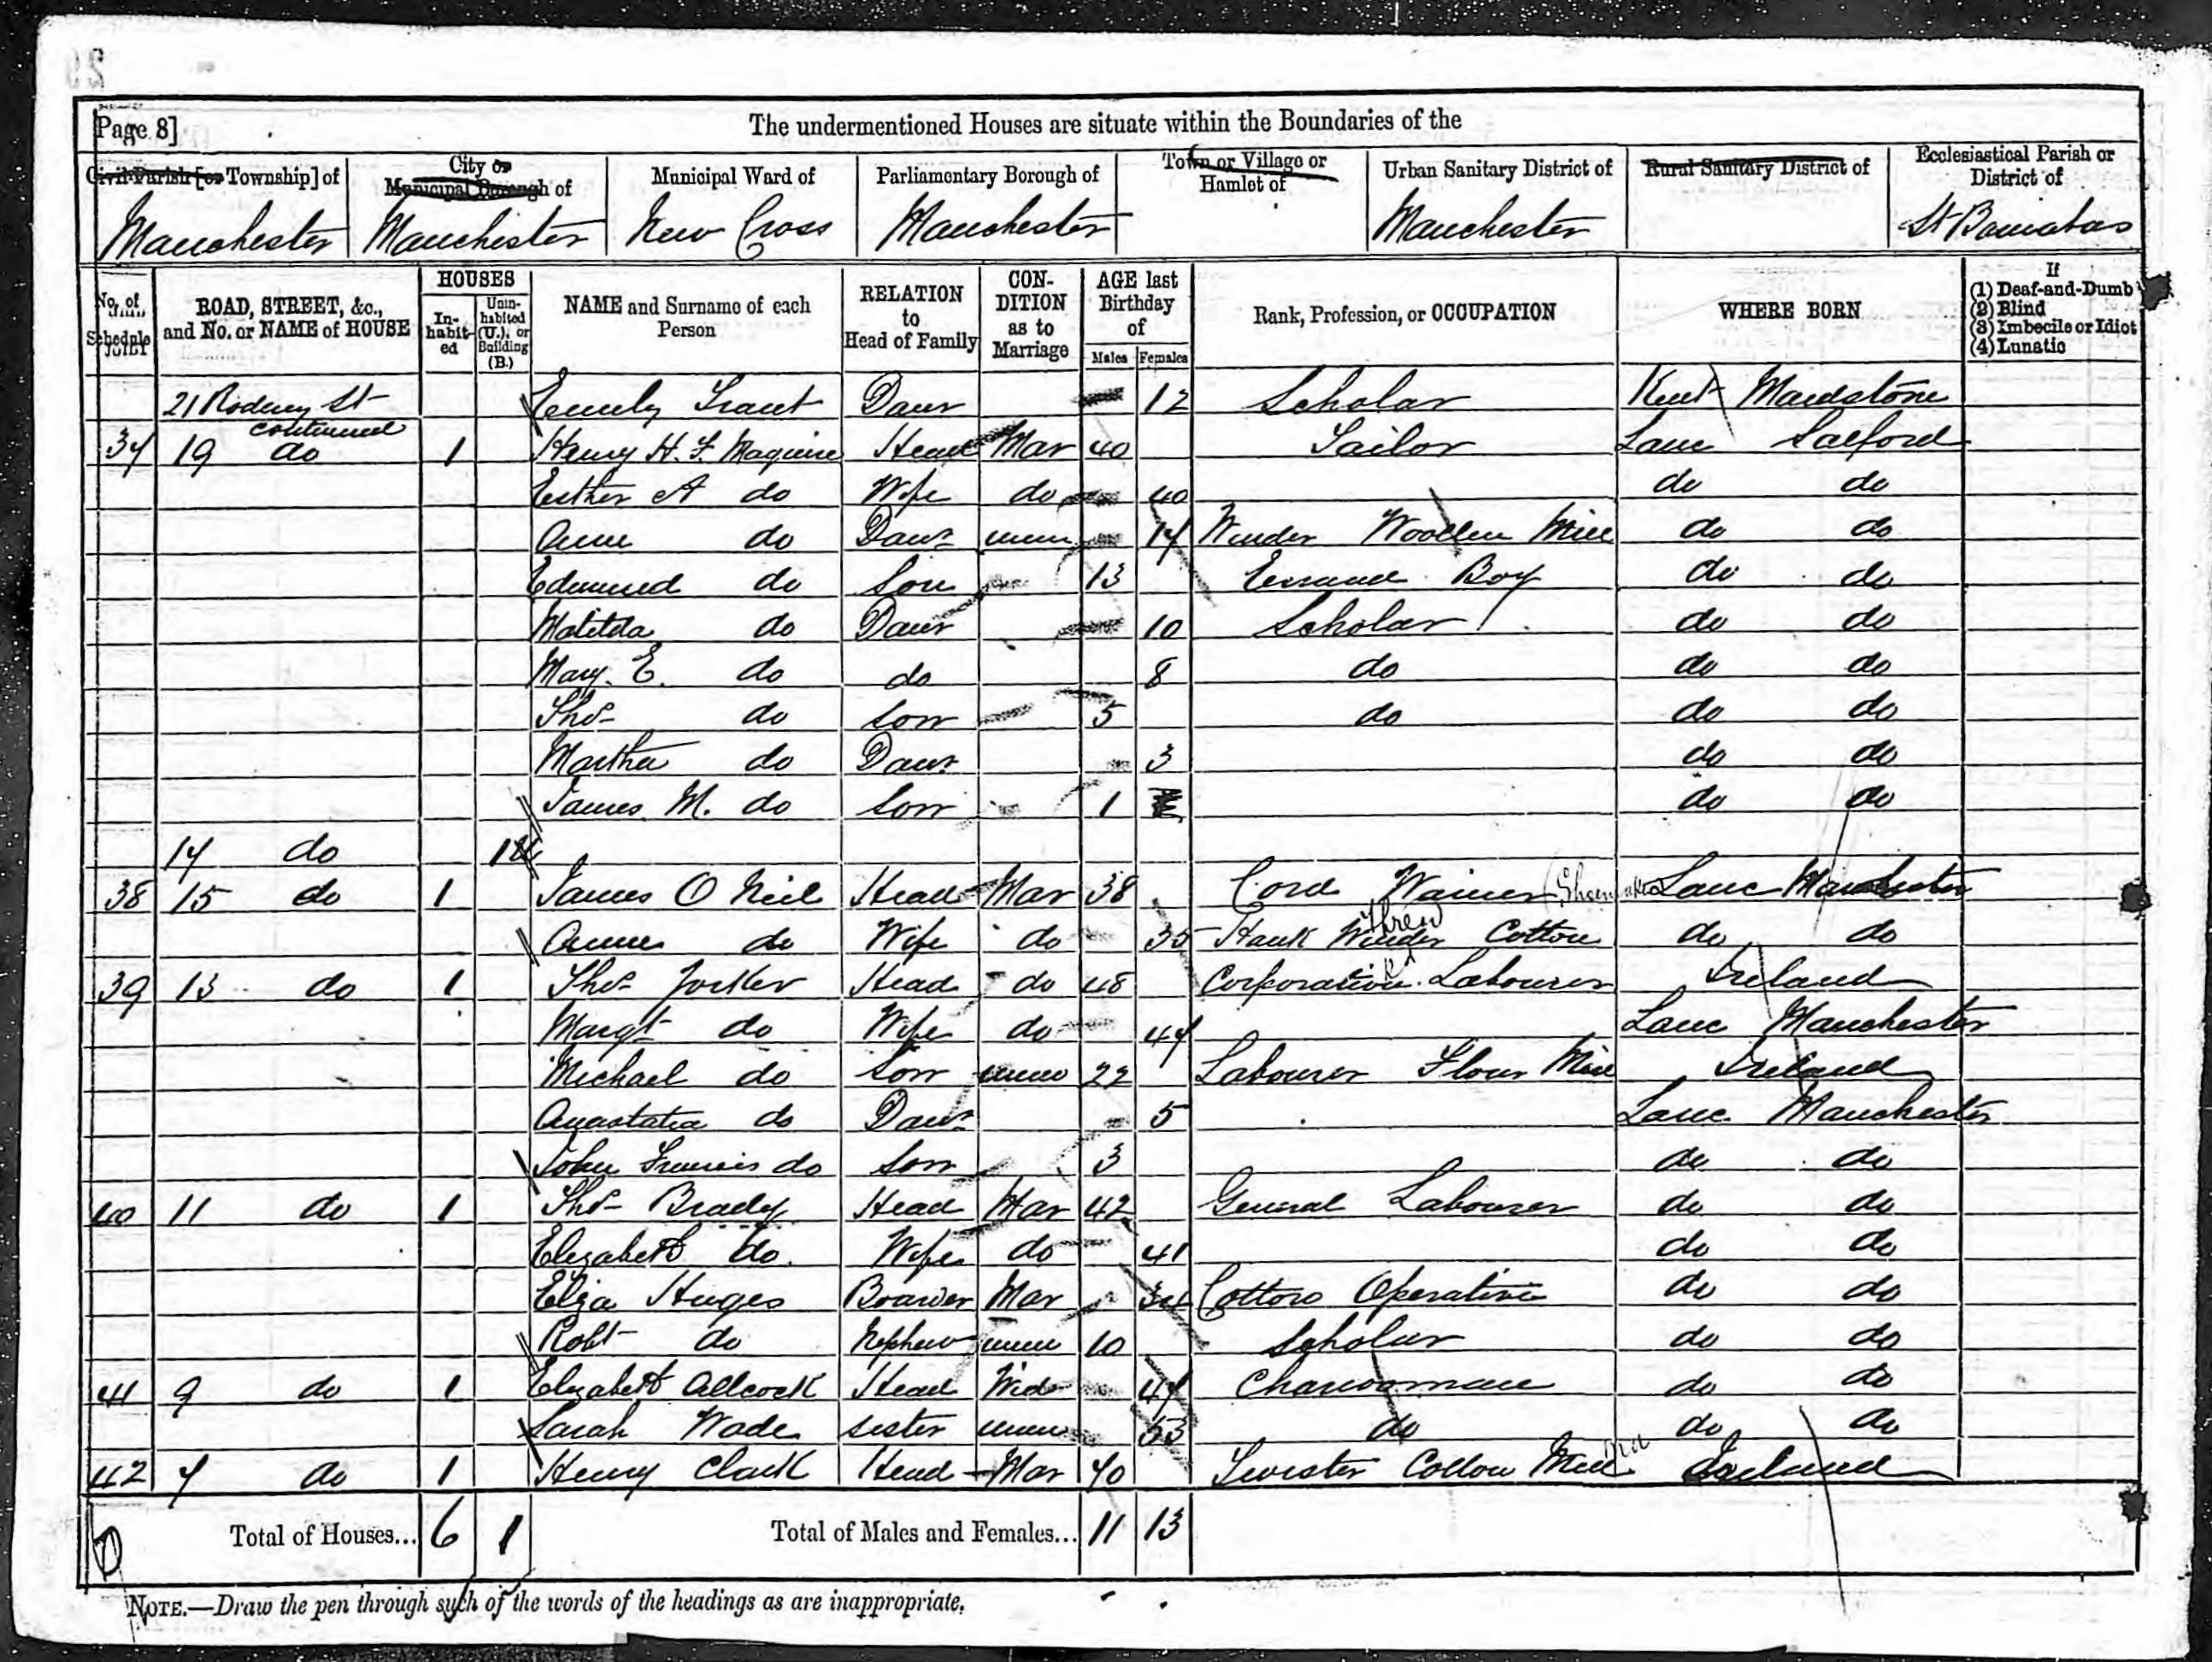 Page 8]
The undermentioned Houses are situate within the Boundaries of the
Civil Parish [or Township] of
City or Municipal Borough of
Municipal Ward of
Parliamentary Borough of
Town or Village or Hamlet of
Urban Sanitary District of
Rural Sanitary District of
Ecclesiastical Parish or District of
Manchester Manchester New Cross Manchester Manchester St Barnabas
No. of Schedule
ROAD, STREET, &c., and No. or NAME of HOUSE
HOUSES
Inhabited
Uninhabited (U.), or Building (B.)
NAME and Surname of each Person
RELATION to Head of Family
CONDITION as to Marriage
AGE last Birthday of
Males Females
Rank, Profession, or OCCUPATION
WHERE BORN
If
(1) Deaf-and-Dumb
(2) Blind
(3) Imbecile or Idiot
(4) Lunatic
21 Rodney St continued Emily Grant Daur 12 Scholar Kent Maidstone
37 19 do 1 Henry H. F. Maguire Head Mar 40 Tailor Lanc Salford
Esther A do Wife do 40 do do
Ann do Daur unm 17 Winder Woollen Mill do do
Edmund do Son 13 Errand Boy do do
Matilda do Daur 10 Scholar do do
Mary E. do do 8 do do do
Thos do Son 5 do do do
Martha do Daur 3 do do
James M. do Son 1 do do
17 do 1U
38 15 do 1 James O Neil Head Mar 38 Cord Wainer (Shoemaker Lanc Manchester
Anne do Wife do 35 Hank Winder Cotton do do
39 13 do 1 Thos Head do 48 Corporation Labourer Ireland
Margt do Wife do 47 Lanc Manchester
Michael do Son unm 22 Labourer Flour Mill Ireland
Anastatia do Daur 5 Lanc Manchester
John Francis do Son 3 do do
40 11 do 1 Thos Brady Head Mar 42 General Labourer do do
Elizabeth do Wife do 41 do do
Eliza Huges Boarder Mar 34 Cotton Operative do do
Robt do Nephew unm 10 Scholar do do
41 9 do 1 Elizabeth Allcock Head Wid 47 Charwoman do do
Sarah Wade sister unm 53 do do do
42 7 do 1 Henry Clark Head Mar 40 Twister Cotton Mill Ireland
Total of Houses... 6 1 Total of Males and Females... 11 13
NOTE.—Draw the pen through such of the words of the headings as are inappropriate.